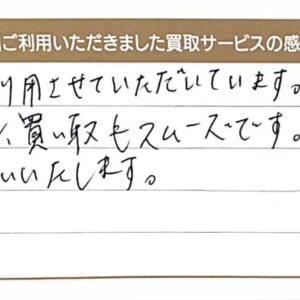 ご利用いただきました買取サービスの感
利用させていただいています。
買い取もスムーズです。
いいたします。